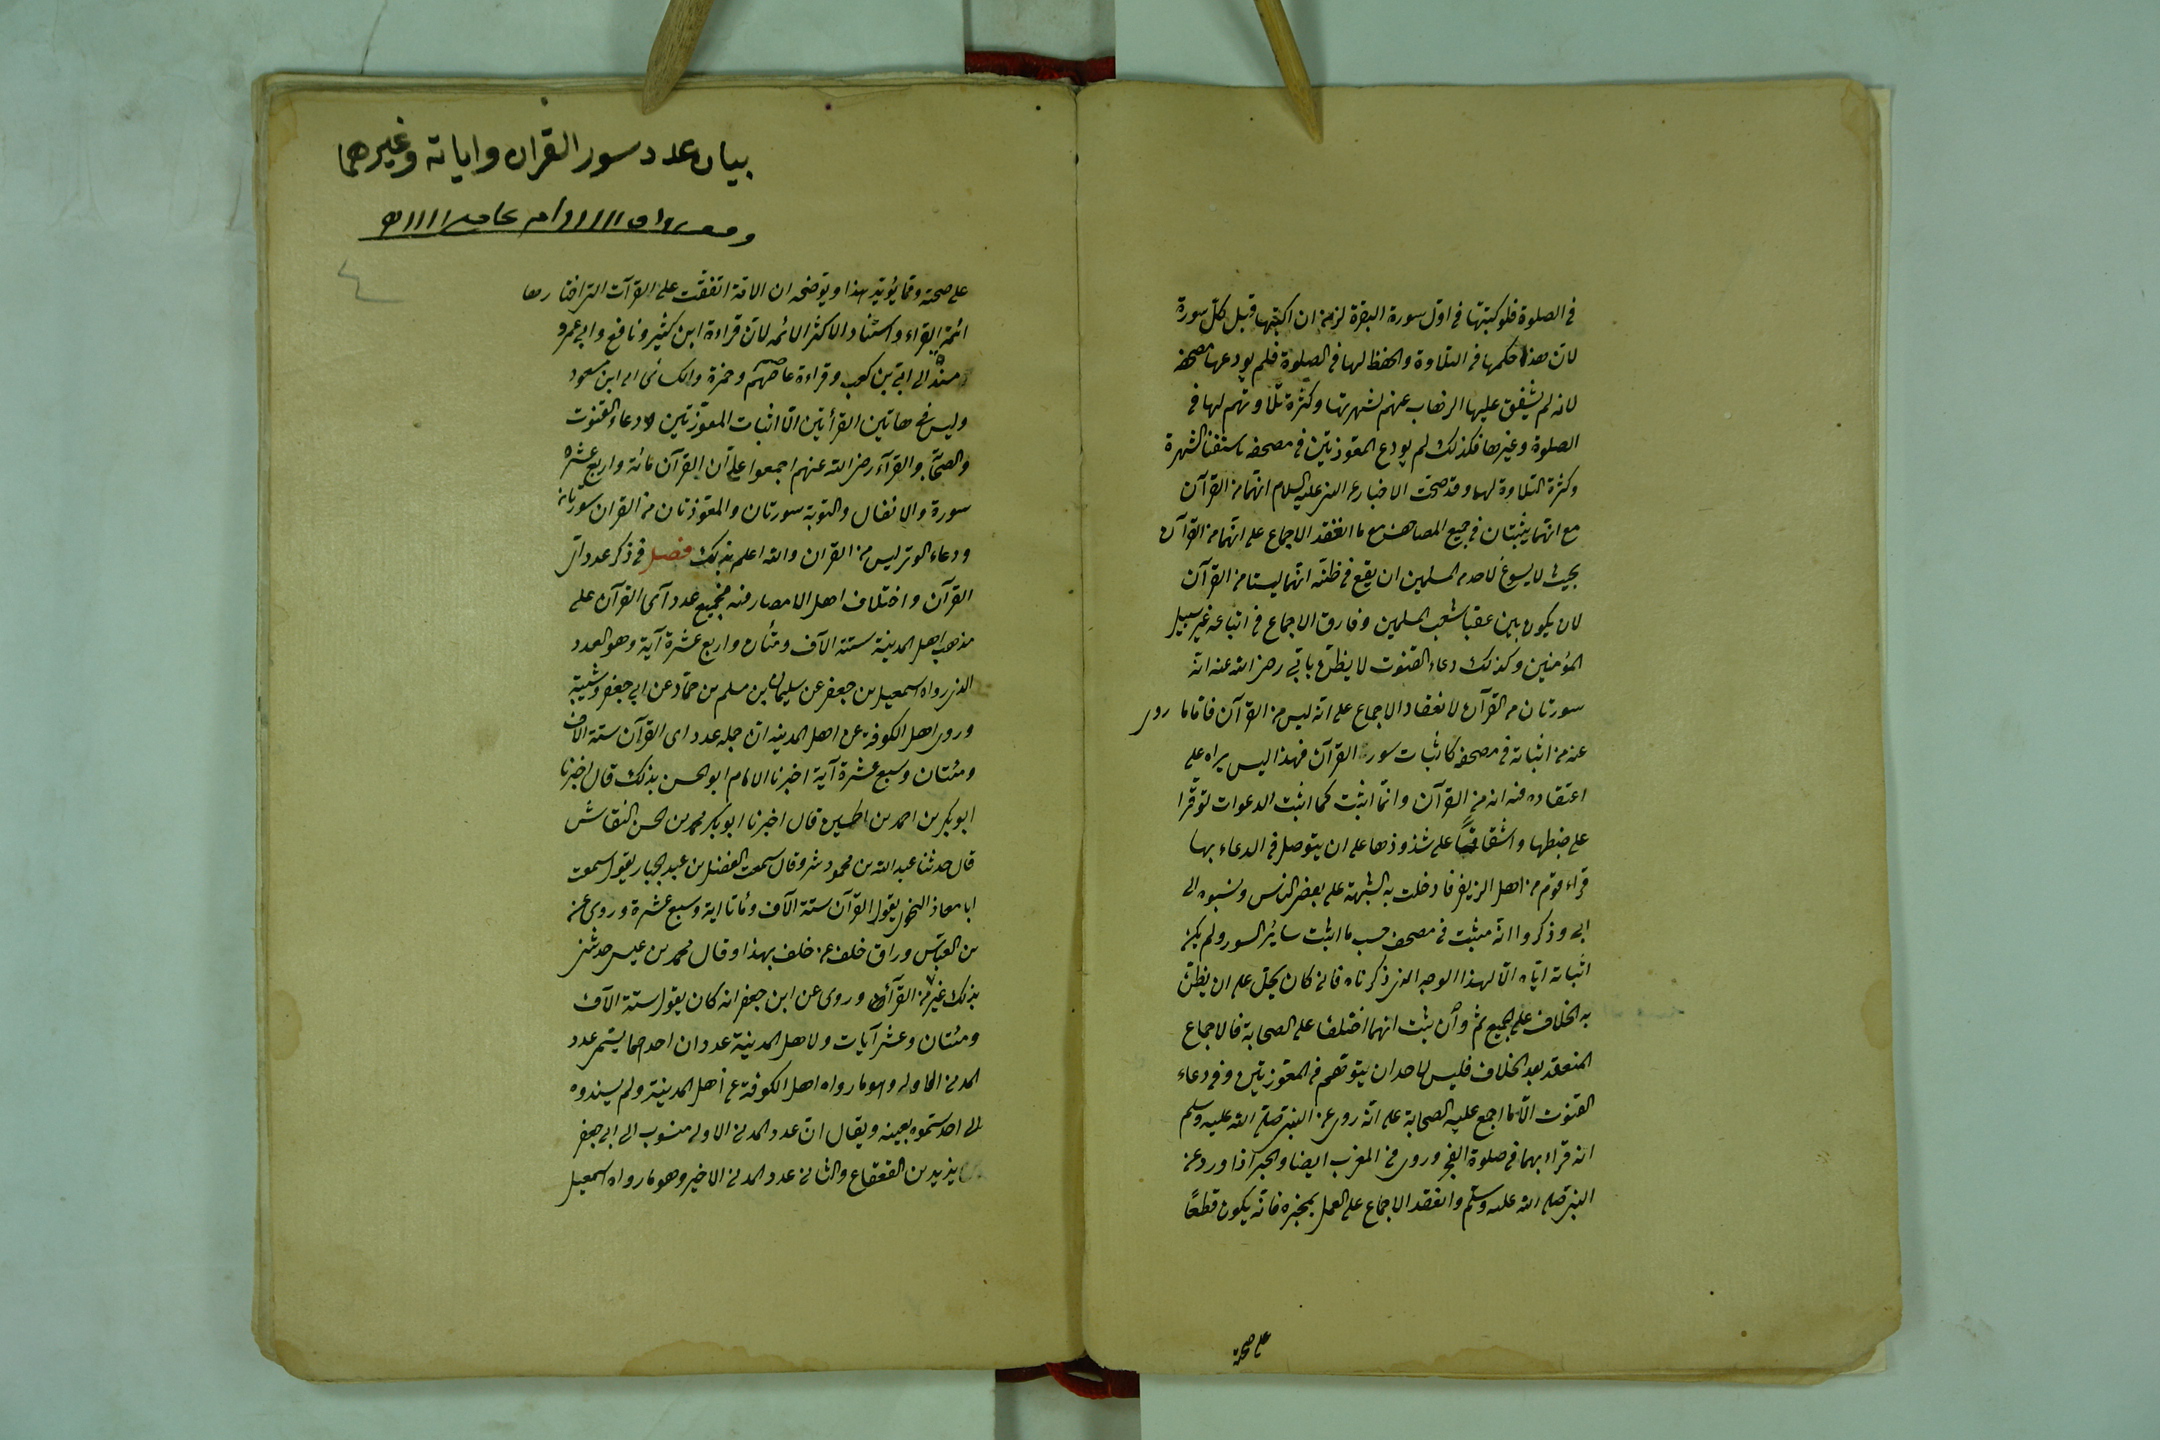 في الصلوة فلو كتبتها في اوّل سورة البقرة لزمنى ان اكتبها قبل كلّ سورة
لان هذا حكمها في التلاوة والحفظ لها في الصلوة فلم يودعها مصحفه
لانه لم يشفق عليها الذهاب عنهم لشهرتها وكثرة تلاوتهم لها في
الصلوة وغيرها فكذلك لم يودع المعوّذتين في مصحفه باستفنا الشهرة
وكثرة التلاوة لهما وقد صحت الاخبار عن النبي عليه السلام انهما من القرآن
مع انهما يثبتان في جميع المصاحف مع ما انعقد الاجماع على انهما من القرآن
بحيث لا يسوغ لاحد من المسلمين ان يقع في ظنّه انهما ليستا من القرآن
لان يكون بين عقبا شعب المسلمين وفارق الاجماع في اتباعه غير سبيل
المؤمنين وكذلك دعاء القنوت لا يظنّ بابيّ رضى الله عنه انه
سورتان من القرآن لانعقاد الاجماع على انه ليس من القرآن فاما ما روى
عنه من اثباته في مصحفه كاثبات سورة القرآن فهذا ليس يراه على
اعتقاده منه انه من القرآن وانما اثبت كما اثبت الدعوات توقرا
على ضبطها واشقاقا على شذوذها على ان يتوصل في الدعاء بها
قراء قوم من اهل الزيغ فادخلت به الشبهة على بعض الناس ونسبوه الى
ابي وذكروا انه مثبت في مصحفه حسب ما اثبت سائر السور ولم يكن
اثباته اياه الّا لهذا الوجه الذي ذكرناه فانه كان يجلّ على ان يظنّ
به الخلاف على الجميع ثم وان ثبت انهما اختلفا على الصحابة فالاجماع
المنعقد بعد الخلاف فليس لاحد ان يتوقهم في المعوّزتين وفي دعاء
القنوت الّا ما اجمع عليه الصحابة على انه روى عن النبي صلى الله عليه وسلم
انه قراء بهما في صلوة الفجر وروى في المغرب ايضا والخبر اذا ورد عن
النبي صلى الله عليه وسلّم وانعقد الاجماع على العمل بمخبره فانه يكون قطعًا
على صحته
بيان عدد سور القران واياته وغيرهما
٤
على صحته وممّا يؤيّد هذا ويوضحه ان الامّة اتفقت على القرآت التى اختارها
ائمة القراء واسناد الاكثر الائمه لان قراءة ابن كثير ونافع وابي عمرو
مسند الى ابيّ بن كعب وقراءة عاصم وحمزة والكسائى الى ابن مسعود
وليس في هاتين القرأتين الّا اثبات المعوّزتين ودعاء القنوت
والصحابة والقرآء رضى الله عنهم اجمعوا على ان القرآن مائة واربع عشرة
سورة والانفال والتوبة سورتان والمعوّذتان من القران سورتان
ودعاء الوتر ليس من القران والله اعلم بذلك فصل في ذكر عدد اى
القرآن واختلاف اهل الامصار فيه فجميع عدد آى القرآن على
مذهب اهل المدينة ستة الآف ومئتان واربع عشرة آية وهو العدد
الذى رواه اسمعيل بن جعفر عن سليمان بن مسلم بن حمّاد عن ابي جعفر وشيبة
وروى اهل الكوفة عن اهل المدينه ان جمله عدد اى القرآن ستة الاف
ومئتان وسبع عشرة آية اخبرنا الامام ابو الحسن بذلك قال اخبرنا
ابو بكر بن احمد بن الحسين قال اخبرنا ابو بكر محمد بن الحسن النقاش
قال حدثنا عبد الله بن محمود مشرو قال سمعت الفضل بن عبد الجبار يقول سمعت
ابا معاذ النحوى يقول القرآن ستة الآف ومأتا اية وسبع عشرة وروى عن
بن العباس وراق خلف عن خلف بهذا وقال محمد بن عيسى حدثنى
بذلك غير من القرآن وروى عن ابن جعفر انه كان يقول ستة الآف
ومئتان وعشر آيات ولاهل المدينة عددان احدهما يستمى عدد
المدنى الاوله وهو ما رواه اهل الكوفة عن اهل المدينة ولم يسندوه
الى احد ستموه بعينه ويقال ان عدد المدنى الاولى منسوب الى ابي جعفر
يزيد بن القعقاع والثاني عدد المدنى الاخير وهو ما رواه اسمعيل